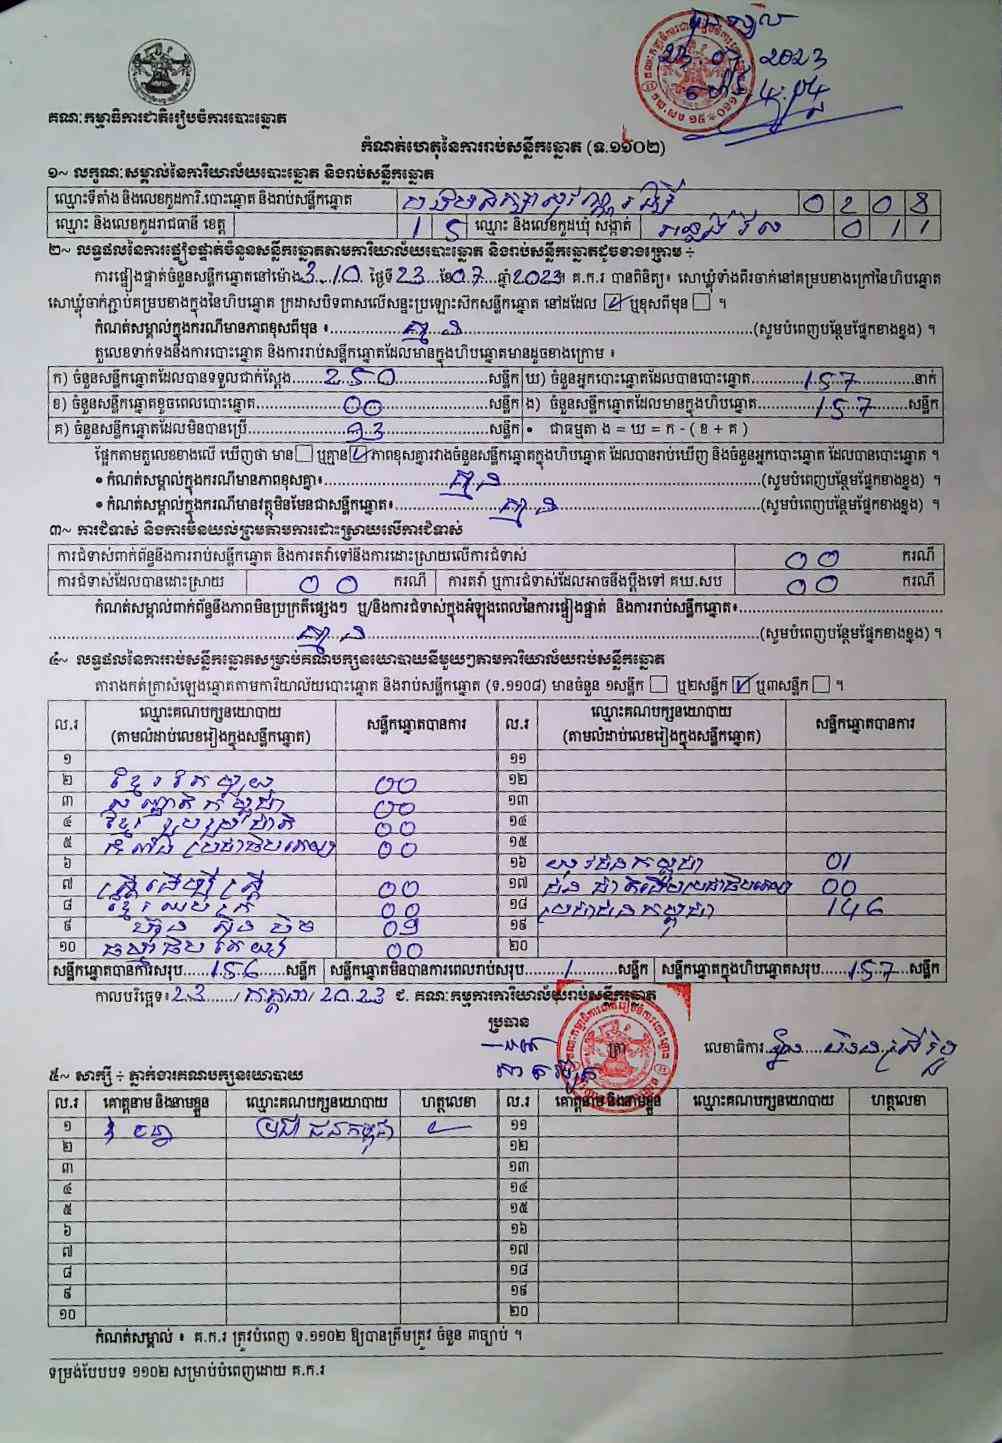 គណៈកម្មាធិការជាតិរៀបចំការបោះឆ្នោត
23.07.2023
កំណត់ហេតុនៃការរាប់សន្លឹកឆ្នោត (ទ.១១០២)
១~ លក្ខណៈសម្គាល់នៃការិយាល័យបោះឆ្នោត និងរាប់សន្លឹកឆ្នោត
ឈ្មោះទីតាំង និងលេខកូដការិ.បោះឆ្នោត និងរាប់សន្លឹកឆ្នោត 0 2 0 8
ឈ្មោះ និងលេខកូដរាជធានី ខេត្ត 1 5 ឈ្មោះ និងលេខកូដឃុំ សង្កាត់ 0 1 1
២~ លទ្ធផលនៃការផ្ទៀងផ្ទាត់ចំនួនសន្លឹកឆ្នោតតាមការិយាល័យបោះឆ្នោត និងរាប់សន្លឹកឆ្នោតដូចខាងក្រោម ÷
ការផ្ទៀងផ្ទាត់ចំនួនសន្លឹកឆ្នោតនៅម៉ោង 3.10 ថ្ងៃទី 23 ខែ 07 ឆ្នាំ 2023។ គ.ក.រ បានពិនិត្យ៖ សោឃ្លុំទាំងពីរចាក់នៅគម្របខាងក្រៅនៃហិបឆ្នោត
សោឃ្លុំចាក់ភ្ជាប់គម្របខាងក្នុងនៃហិបឆ្នោត ក្រដាសបិទពាសលើសន្ទះប្រឡោះស៊កសន្លឹកឆ្នោត នៅដដែល ☑ ឬខុសពីមុន ☐ ។
កំណត់សម្គាល់ក្នុងករណីមានភាពខុសពីមុន ៖ គ្មាន (សូមបំពេញបន្ថែមផ្នែកខាងខ្នង) ។
តួលេខទាក់ទងនឹងការបោះឆ្នោត និងការរាប់សន្លឹកឆ្នោតដែលមានក្នុងហិបឆ្នោតមានដូចខាងក្រោម ៖
ក) ចំនួនសន្លឹកឆ្នោតដែលបានទទួលជាក់ស្តែង 250 សន្លឹក ឃ) ចំនួនអ្នកបោះឆ្នោតដែលបានបោះឆ្នោត 157 នាក់
ខ) ចំនួនសន្លឹកឆ្នោតខូចពេលបោះឆ្នោត 00 សន្លឹក ង) ចំនួនសន្លឹកឆ្នោតដែលមានក្នុងហិបឆ្នោត 157 សន្លឹក
គ) ចំនួនសន្លឹកឆ្នោតដែលមិនបានប្រើ 93 សន្លឹក • ជាធម្មតា ង = ឃ = ក - ( ខ + គ )
ផ្អែកតាមតួលេខខាងលើ ឃើញថា មាន ☐ ឬគ្មាន ☑ ភាពខុសគ្នារវាងចំនួនសន្លឹកឆ្នោតក្នុងហិបឆ្នោត ដែលបានរាប់ឃើញ និងចំនួនអ្នកបោះឆ្នោត ដែលបានបោះឆ្នោត ។
• កំណត់សម្គាល់ក្នុងករណីមានភាពខុសគ្នា៖ គ្មាន (សូមបំពេញបន្ថែមផ្នែកខាងខ្នង) ។
• កំណត់សម្គាល់ក្នុងករណីមានវត្ថុមិនមែនជាសន្លឹកឆ្នោត៖ គ្មាន (សូមបំពេញបន្ថែមផ្នែកខាងខ្នង) ។
៣~ ការជំទាស់ និងការមិនយល់ព្រមតាមការដោះស្រាយលើការជំទាស់
ការជំទាស់ពាក់ព័ន្ធនឹងការរាប់សន្លឹកឆ្នោត និងការតវ៉ាទៅនឹងការដោះស្រាយលើការជំទាស់ 00 ករណី
ការជំទាស់ដែលបានដោះស្រាយ 00 ករណី ការតវ៉ា ឬការជំទាស់ដែលអាចនឹងប្តឹងទៅ គឃ.សប 00 ករណី
កំណត់សម្គាល់ពាក់ព័ន្ធនឹងភាពមិនប្រក្រតីផ្សេងៗ ឬ/និងការជំទាស់ក្នុងអំឡុងពេលនៃការផ្ទៀងផ្ទាត់ និងការរាប់សន្លឹកឆ្នោត៖
គ្មាន (សូមបំពេញបន្ថែមផ្នែកខាងខ្នង) ។
៤~ លទ្ធផលនៃការរាប់សន្លឹកឆ្នោតសម្រាប់គណបក្សនយោបាយនីមួយៗតាមការិយាល័យរាប់សន្លឹកឆ្នោត
តារាងកត់ត្រាសំឡេងឆ្នោតតាមការិយាល័យបោះឆ្នោត និងរាប់សន្លឹកឆ្នោត (ទ.១១០៨) មានចំនួន ១សន្លឹក ☐ ឬ២សន្លឹក ☑ ឬ៣សន្លឹក ☐ ។
ល.រ ឈ្មោះគណបក្សនយោបាយ (តាមលំដាប់លេខរៀងក្នុងសន្លឹកឆ្នោត) សន្លឹកឆ្នោតបានការ ល.រ ឈ្មោះគណបក្សនយោបាយ (តាមលំដាប់លេខរៀងក្នុងសន្លឹកឆ្នោត) សន្លឹកឆ្នោតបានការ
១ ១១
២ 00 ១២
៣ 00 ១៣
៤ ខ្មែររួបរួមជាតិ 00 ១៤
៥ 00 ១៥
៦ ១៦ យុវជនកម្ពុជា 01
៧ ស្ត្រីដើម្បីស្ត្រី 00 ១៧ 00
៨ 00 ១៨ ប្រជាជនកម្ពុជា 146
៩ ហ៊្វុនស៊ិនប៉ិច 09 ១៩
១០ 00 ២០
សន្លឹកឆ្នោតបានការសរុប 156 សន្លឹក សន្លឹកឆ្នោតមិនបានការពេលរាប់សរុប 1 សន្លឹក សន្លឹកឆ្នោតក្នុងហិបឆ្នោតសរុប 157 សន្លឹក
កាលបរិច្ឆេទ៖ 23 / កក្កដា / 2023 ជ. គណៈកម្មការការិយាល័យរាប់សន្លឹកឆ្នោត
ប្រធាន
ត្រា
លេខាធិការ
៥~ សាក្សី ÷ ភ្នាក់ងារគណបក្សនយោបាយ
ល.រ គោត្តនាម និងនាមខ្លួន ឈ្មោះគណបក្សនយោបាយ ហត្ថលេខា ល.រ គោត្តនាម និងនាមខ្លួន ឈ្មោះគណបក្សនយោបាយ ហត្ថលេខា
១ ប្រជាជនកម្ពុជា ១១
២ ១២
៣ ១៣
៤ ១៤
៥ ១៥
៦ ១៦
៧ ១៧
៨ ១៨
៩ ១៩
១០ ២០
កំណត់សម្គាល់ ៖ គ.ក.រ ត្រូវបំពេញ ទ.១១០២ ឱ្យបានត្រឹមត្រូវ ចំនួន ៣ច្បាប់ ។
ទម្រង់បែបបទ ១១០២ សម្រាប់បំពេញដោយ គ.ក.រ